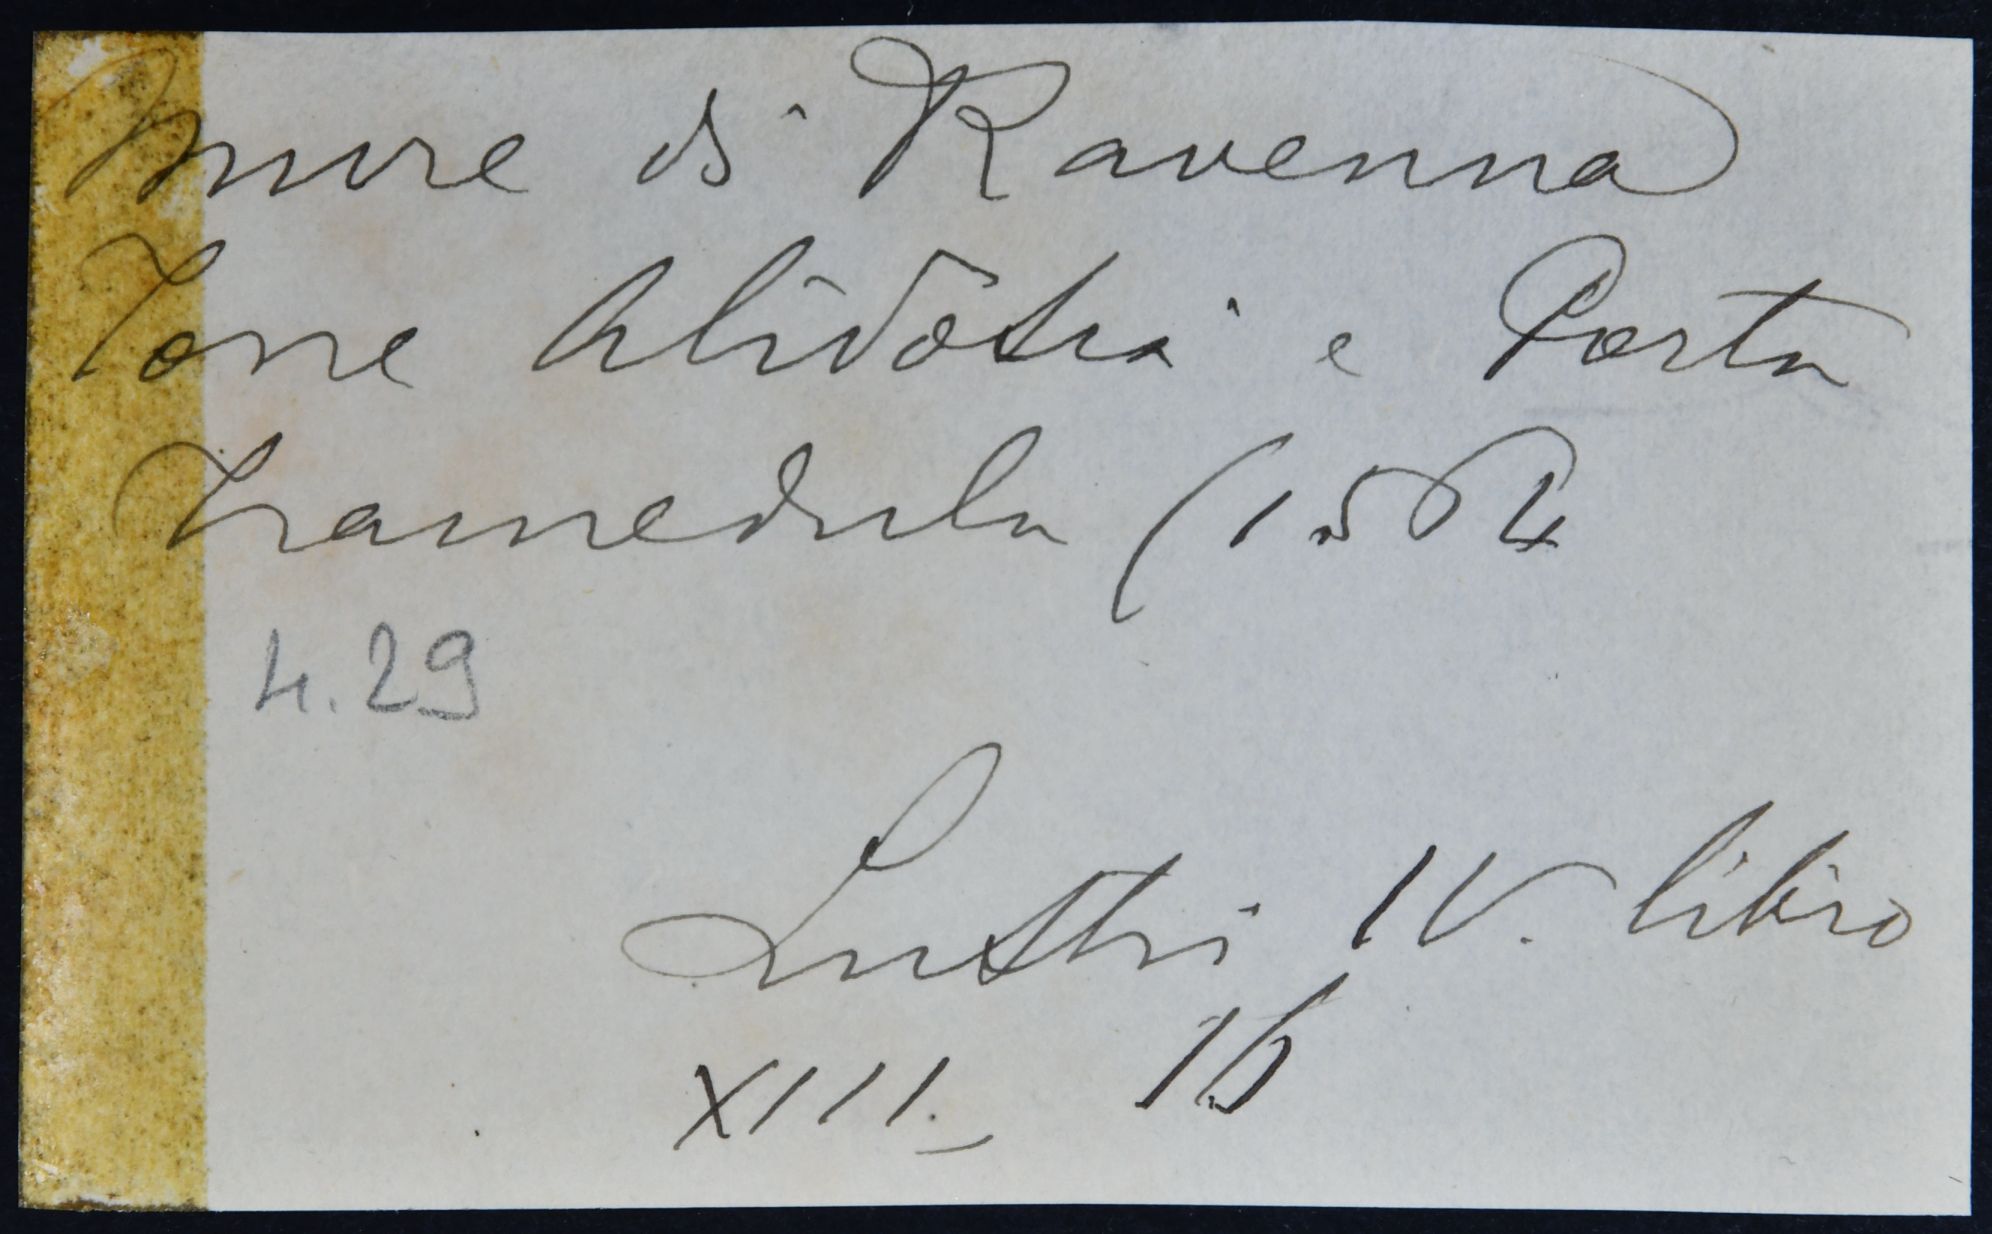 Mure di Ravenna
Torre Alidosia e Porta
Tramedula (1564
4.29
Lustri IV. libro
XIII. 16